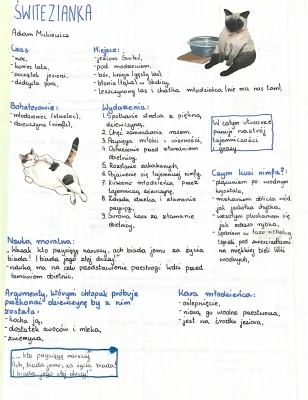 ŚWITEZIANKA
Adam Mickiewicz
Czas
- noc,
- koniec lata,
- początek jesieni,
- deszcze pora,
Miejsce:
- jezioro Świteź,
- pod modrzewiem,
- bór, knieja (gęsty las),
- błonia (łąka) w okolicy,
- leszczynowy las i chatka młodzieńca (nie ma nas tam),
Bohaterowie:
- młodzieniec (strzelec),
- dziewczyna (nimfa),
Wydarzenia:
1. Spotkanie strzelca z piękną
dziewczyną.
2. Chęć zamieszkania razem.
3. Przysięga miłości i wierności,
4. Ostrzeżenie przed złamaniem
obietnicy,
5. Rozstanie zakochanych,
6. Pojawienie się tajemniczej nimfy,
7. Kuszenie młodzieńca przez
tajemniczą dziewczynę,
8. Zdrada strzelca i złamanie
przysięgi,
9. Surowa kara za złamanie
obietnicy,
W całym utworze
panuje nastrój
tajemniczości
i grozy.
Czym kusi nimfa?:
- pląsaniem po wodnym
krysztale,
- jak jaskółka chybka,
- wesołym pluskaniem się
jak zdrowa rybka,
- spaniem w łożu
topieli pod zwierciadłami
na miękkiej bieli lilii
wodnych,
Nauka moralna:
- Wszak kto przysięgę naruszy, ach biada jemu za życia
biada! I biada jego złej duszy!"
- nauka ma na celu przedstawienie przestrogi ludzi przed
łamaniem obietnic,
Argumenty, którymi chłopak próbuje
przekonać dziewczynę by z nim
została:
- kocha ją,
- dostatek owoców i mleka,
- zwierzyna,
Kara młodzieńca:
- oślepnięcie,
- giną go wodne przestworza,
- jest na środku jeziora,
„... kto przysięgę naruszy,
Ach, biada jemu, za życia biada!
I biada jego złej duszy!"